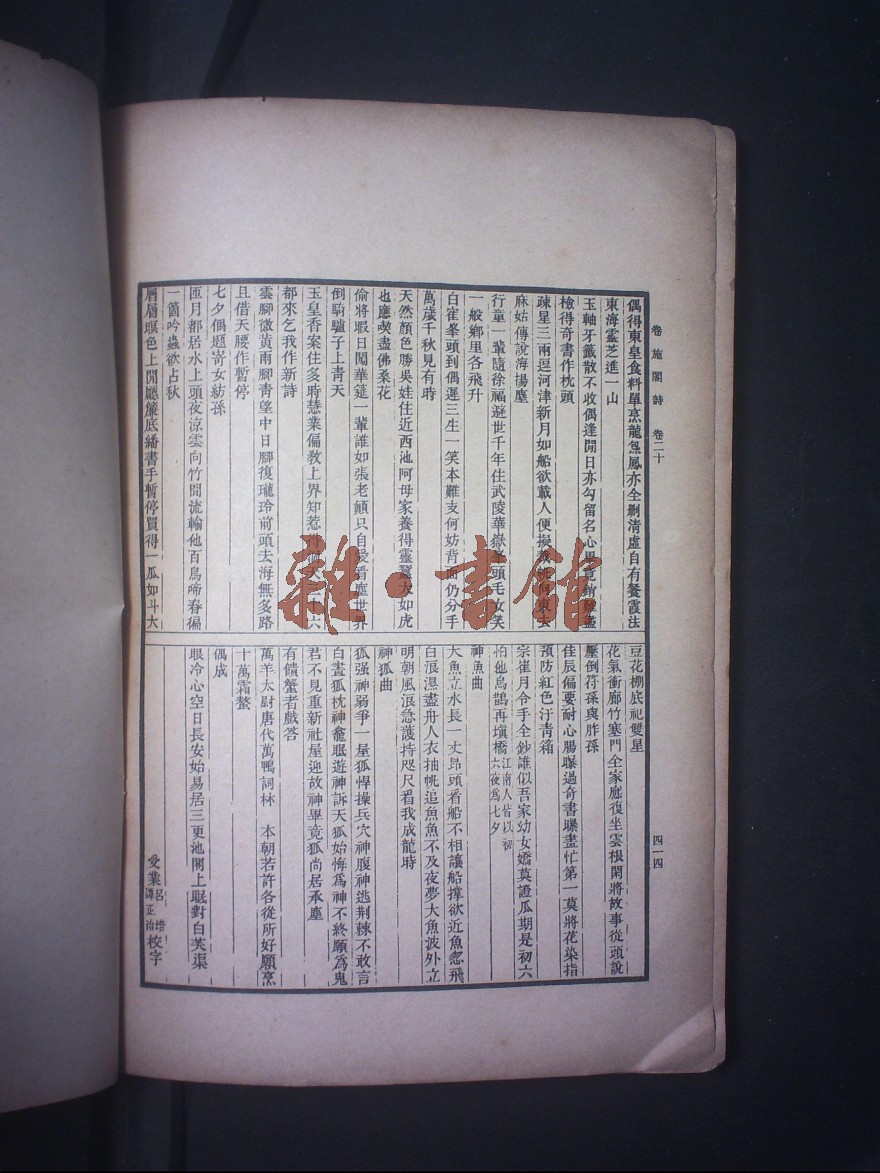 卷施閣詩 卷二十
四一四
偶得東皇食料單烹龍炰鳳亦全刪清虛自有餐霞法
東海靈芝進一山
玉軸牙籤散不收偶逢閒日亦勾留名心畢竟銷難盡
檢得奇書作枕頭
疎星三兩逗河津新月如船欲載人便擬
麻姑傳說海揚塵
行童一輩隨徐福避世千年住武陵華嶽峯頭毛女笑
一般鄉里各飛升
白隺峯頭到偶遲三生一笑本難支何妨背面仍分手
萬歲千秋見有時
天然顏色勝吳娃住近西池阿母家養得靈蠶大如虎
也應喫盡佛桑花
偷將暇日闖華筵一輩誰如張老顛只自愛看塵世界
倒騎驢子上青天
玉皇香案住多時慧業偏教上界知惹得
都來乞我作新詩
雲腳微黃雨腳青望中日腳復瓏玲前頭去海無多路
且借天腰作暫停
七夕偶題寄女紡孫
匝月都居水上頭夜涼雲向竹間流輸他百鳥啼春徧
一箇吟蟲欲占秋
層層暝色上閒廳簾底繙書手暫停買得一瓜如斗大
豆花棚底祀雙星
花氣衝廊竹塞門全家應復坐雲根閑將故事從頭說
壓倒符孫與胙孫
佳辰偏要耐心腸曝過奇書曝盡忙第一莫將花染指
預防紅色汙青箱
宗崔月令手全鈔誰似吾家幼女嬌莫證瓜期是初六
怕他烏鵲再塡橋江南人皆以初六夜爲七夕
神魚曲
大魚立水長一丈昂頭看船不相讓船撑欲近魚忽飛
白浪溼盡舟人衣抽帆追魚魚不及夜夢大魚波外立
明朝風浪急護持咫尺看我成龍時
神狐曲
狐强神弱爭一屋狐悍操兵穴神腹神逃荆棘不敢言
白晝狐枕神龕眠遊神訴天狐始悔爲神不終願爲鬼
君不見重新社屋迎故神畢竟狐尚居承塵
有饋蟹者戲答
萬羊太尉唐代萬鴨詞林 本朝若許各從所好願烹
十萬霜螯
偶成
眼冷心空日長安始易居三更池閣上眠對白芙渠
受業呂培譚正治校字
雜·書館